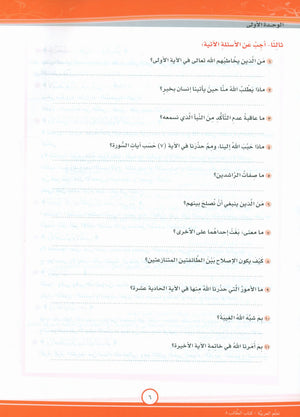 الوحدة الأولى
ثالثًا - أجِبْ عن الأسئلة الآتية:
١ مَن الّذين يخاطبهم الله تعالى في الآية الأولى؟
٢ ماذا يَطلبُ اللهُ منّا حين يأتينا إنسان بخبر؟
٣ ما عاقبة عدم التأكّد مِنَ النّبأ الّذي نسمعه؟
٤ ماذا حبَّبَ اللهُ إلينا، وممّ حذّرنا في الآية (٧) حسَب آيات السُّورة؟
٥ ما صفاتُ الرّاشدين؟
٦ مَن الّذين ينبغي أنْ نُصلح بينهم؟
٧ ما معنى: بَغَتْ إحداهُما على الأخرى؟
٨ كيف يكون الإصلاح بَيْن الطّائفتين المتنازعتين؟
٩ ما الأمورُ الّتي حذرنا اللهُ منها في الآية الحادية عشرة؟
١٠ بِمَ شبّه اللهُ الغِيبةَ؟
١١ بِمَ أمرَنا اللهُ في خاتمة الآية الأخيرة؟
٦
تعلّم العربيّة - كتاب الطّالب ٨